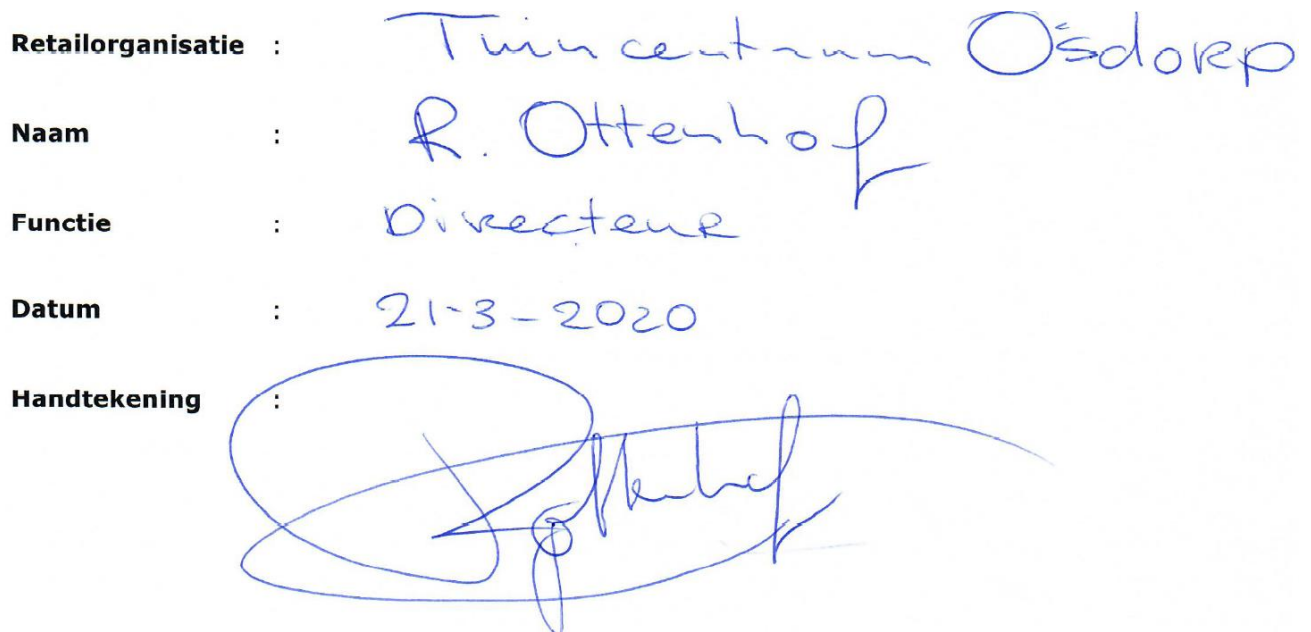 Retailorganisatie : Tuincentrum Osdorp
Naam : R. Ottenhof
Functie : Directeur
Datum : 21-3-2020
Handtekening : ROttenhof